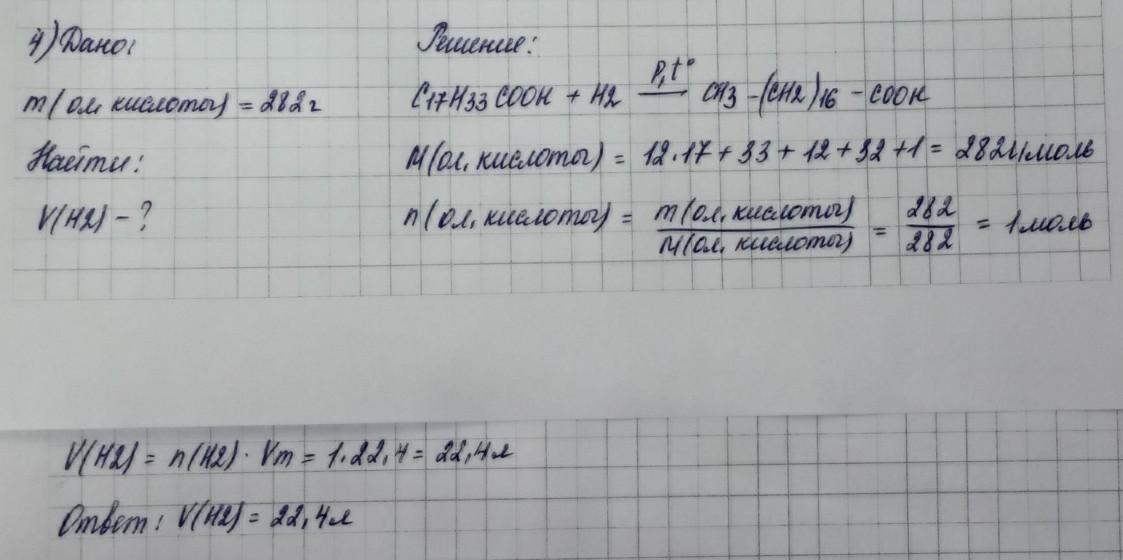 4) Дано: Решение:
m(ол. кислоты) = 282г C17H33COOH + H2 P,t° → CH3-(CH2)16-COOH
Найти: M(ол. кислоты) = 12·17+33+12+32+1= 282г/моль
V(H2) - ? n(ол. кислоты) = m(ол. кислоты)/M(ол. кислоты) = 282/282 = 1моль
V(H2) = n(H2) · Vm = 1·22,4 = 22,4л
Ответ: V(H2) = 22,4л